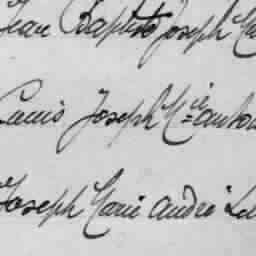 Jean Baptiste Joseph
Louis Joseph M.ie antoi
Joseph Marie andré Le